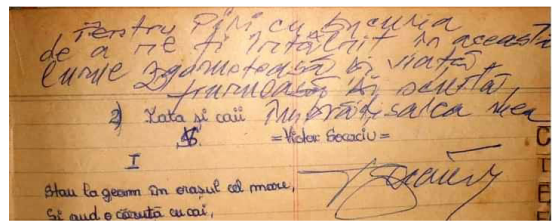 Pentru PIM cu bucuria
de a ne fi întâlnit în această
lume zgomotoasă și viață
frumoasă și scurtă,
Îmbrățișarea mea
2) Lata și caii
= Victor Socaciu =
I
Stau la geam în orașul cel mare,
Și aud o căruță cu cai,
C
L
E